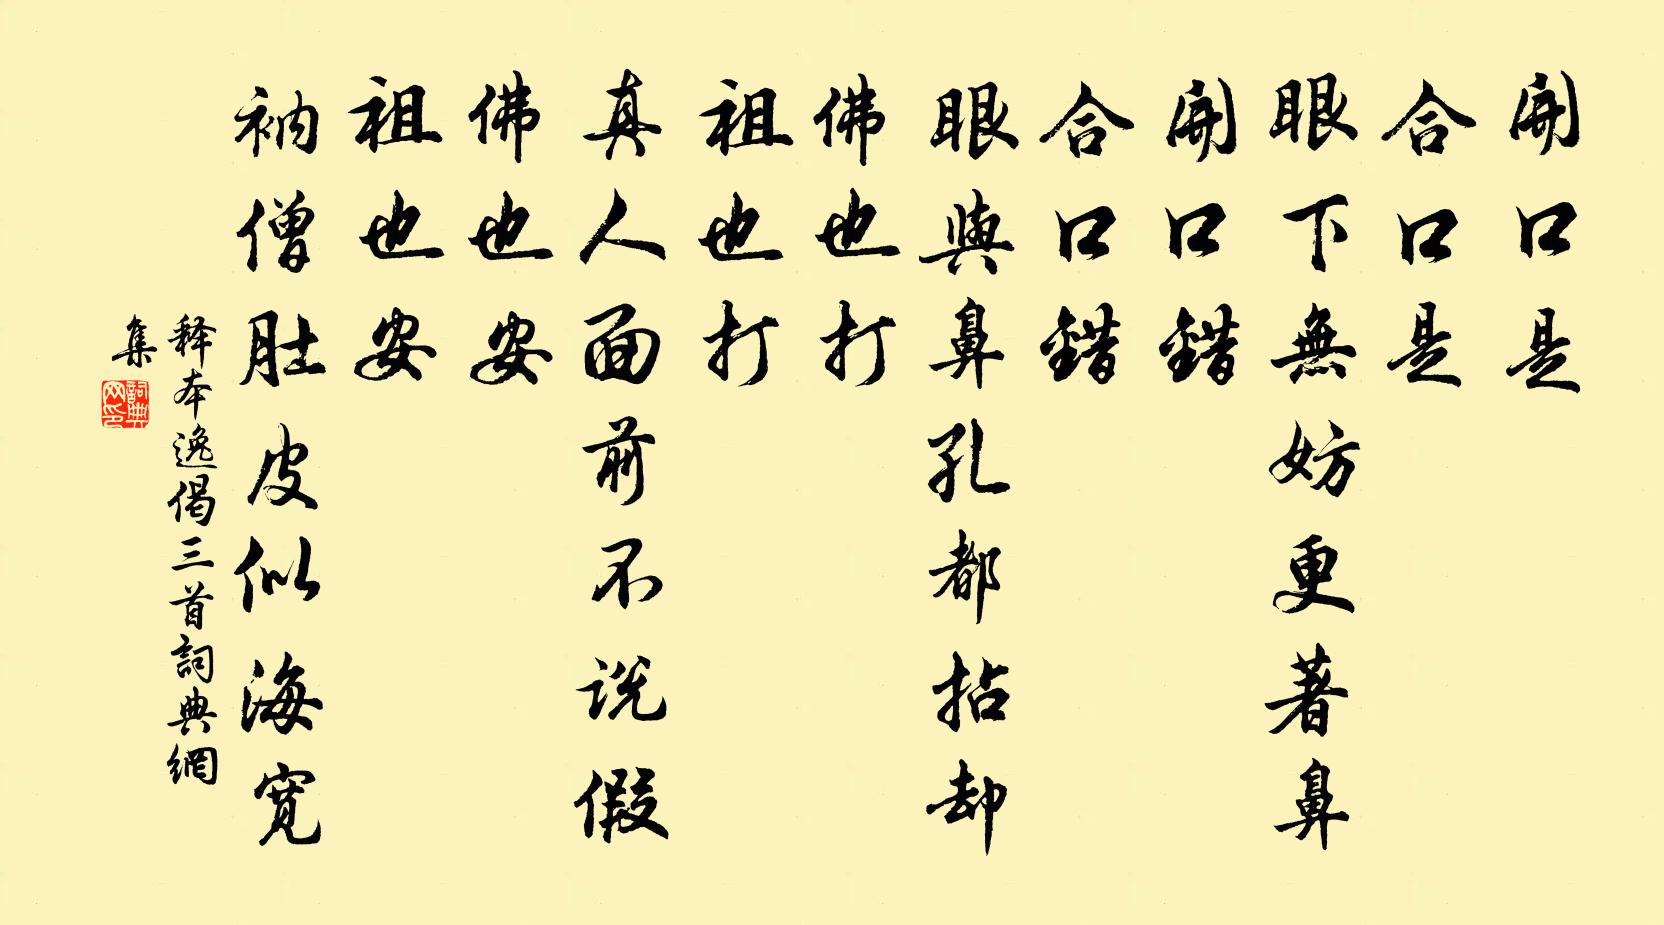 開口是
合口是
眼下無妨更著鼻
開口錯
合口錯
眼與鼻孔都拈却
佛也打
祖也打
真人面前不说假
佛也安
祖也安
衲僧肚皮似海宽
释本逸偈三首詞典網
集
詞典網印